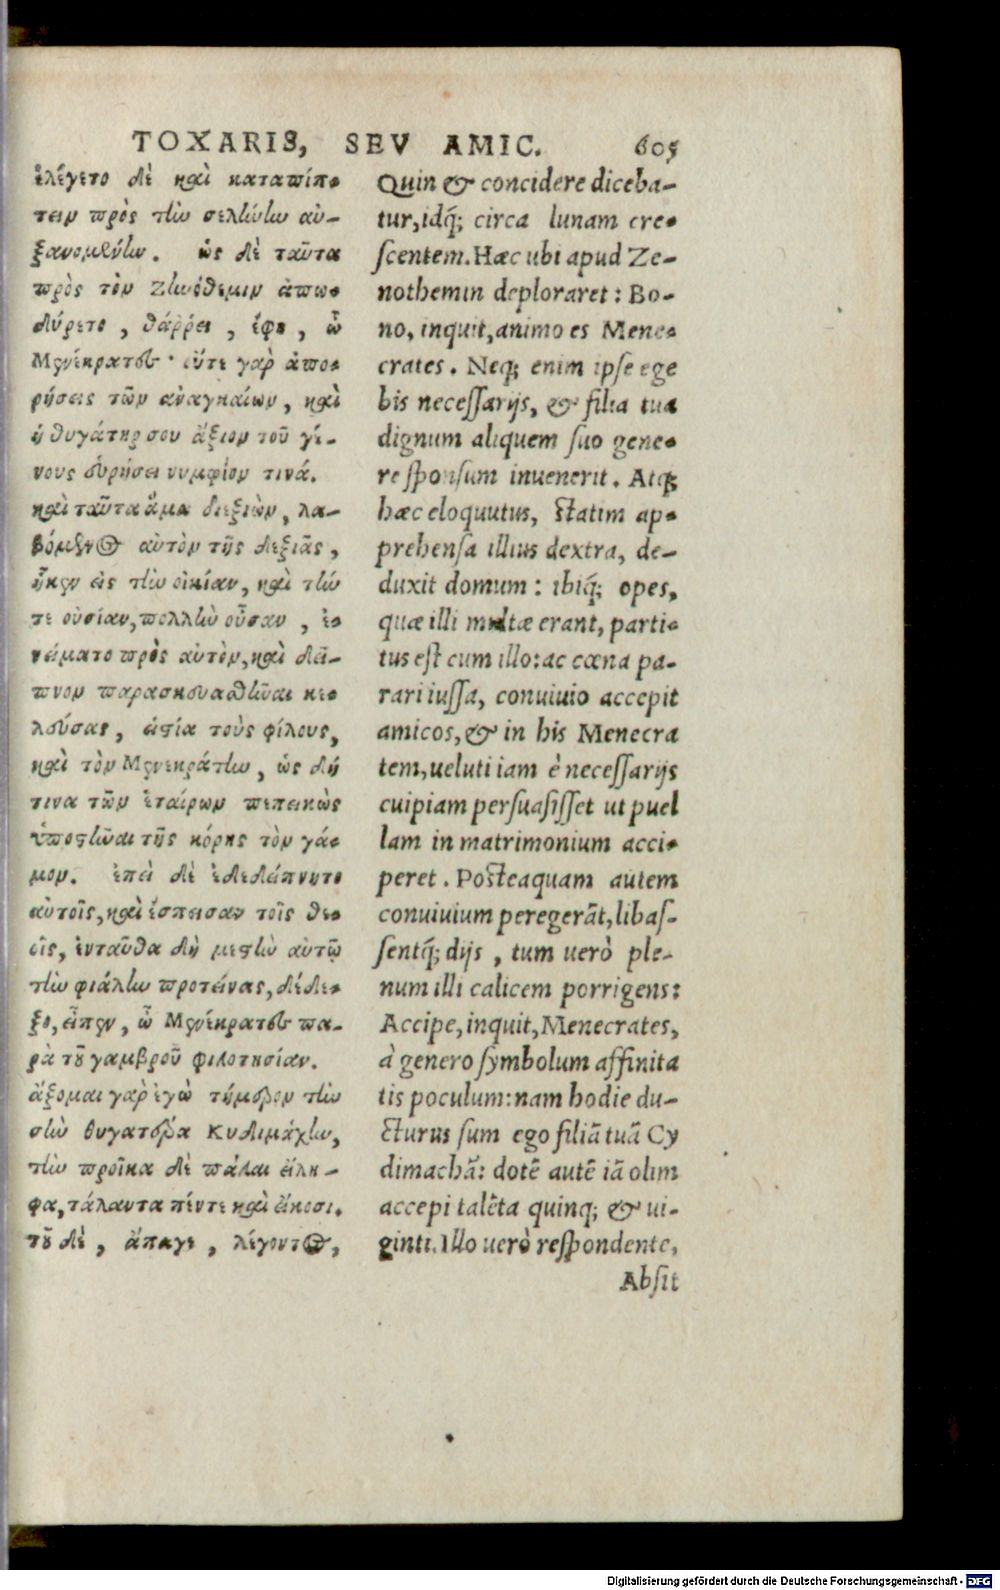 TOXARIS, SEV AMIC. 605
ἐλέγετο δὲ καὶ καταπίπ-
τειν πρὸς τὴν σελήνην αὐ-
ξανομένην. ὡς δὲ ταῦτα
πρὸς τὸν Ζηνόθεμιν ἀπω-
δύρετο, θάῤῥει, ἔφη, ὦ
Μενέκρατες· οὔτε γὰρ ἀπο-
ρήσεις τῶν ἀναγκαίων, καὶ
ἡ θυγάτηρ σου ἄξιον τοῦ γέ-
νους εὑρήσει νυμφίον τινά.
καὶ ταῦτα ἅμα διεξιὼν, λα-
βόμενος αὐτὸν τῆς δεξιᾶς,
ἦκεν εἰς τὴν οἰκίαν, καὶ τήν
τε οὐσίαν, πολλὴν οὖσαν, ἐ-
νείματο πρὸς αὐτὸν, καὶ δεῖ-
πνον παρασκευασθῆναι κε-
λεύσας, εἱστία τοὺς φίλους,
καὶ τὸν Μενεκράτην, ὡς δή
τινα τῶν ἑταίρων πεπεικὼς
ὑποστῆναι τῆς κόρης τὸν γά-
μον. ἐπεὶ δὲ ἐδεδείπνητο
αὐτοῖς, καὶ ἔσπεισαν τοῖς θε-
οῖς, ἐνταῦθα δὴ μεστὴν αὐτῷ
τὴν φιάλην προτείνας, δέδε-
ξο, εἶπεν, ὦ Μενέκρατες πα-
ρὰ τοῦ γαμβροῦ φιλοτησίαν.
ἄξομαι γὰρ ἐγὼ τήμερον τὴν
σὴν θυγατέρα Κυδιμάχην,
τὴν προῖκα δὲ πάλαι εἴλη-
φα, τάλαντα πέντε καὶ εἴκοσι.
τοῦ δὲ, ἄπαγε, λέγοντος,
Quin & concidere diceba-
tur, idq́; circa lunam cre-
scentem. Hæc ubi apud Ze-
nothemin deploraret: Bo-
no, inquit, animo es Mene-
crates. Neq; enim ipse ege
bis necessarijs, & filia tua
dignum aliquem suo gene-
re sponsum inuenerit. Atq;
hæc eloquutus, statim ap-
prehensa illius dextra, de-
duxit domum: ibiq́; opes,
quæ illi multæ erant, parti-
tus est cum illo: ac cœna pa-
rari iussa, conuiuio accepit
amicos, & in his Menecra
tem, ueluti iam è necessarijs
cuipiam persuasisset ut puel
lam in matrimonium acci-
peret. Posteaquam autem
conuiuium peregerãt, libas-
sentq́; dijs, tum uerò ple-
num illi calicem porrigens:
Accipe, inquit, Menecrates,
à genero symbolum affinita
tis poculum: nam hodie du-
cturus sum ego filiã tuã Cy
dimachã: dotẽ autẽ iã olim
accepi talẽta quinq; & ui-
ginti. Illo uerò respondente,
Absit
Digitalisierung gefördert durch die Deutsche Forschungsgemeinschaft - DFG